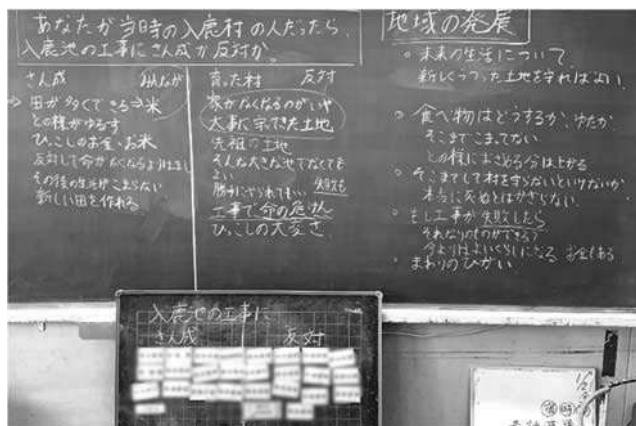 あなたが当時の入鹿村の人だったら、
入鹿池の工事にさん成か反対か。
さん成
田が多くできる→米
との様がゆるす
ひっこしのお金、お米
反対して命がなくなるよりはまし
その後の生活がこまらない
新しい田を作れる
育った村 反対
家がなくなるのがいや
大事に
土地
先祖の土地
そんな大きな池でなくても
よい
失敗も
工事で命の危けん
ひっこしの大変さ
地域の発展
・未来の生活について
新しくつくった土地を守ればよい
・食べ物はどうするか、ゆたか
そこまでこまってない
との様におさめる分は上がる
・そこまでして村を守らないといけないか
本当に死ぬとはかぎらない
・もし工事が失敗したら
それなりのものができる?
今よりはよいくらいになる お金もある
・まわりのひがい
入鹿池の工事に
さん成 反対